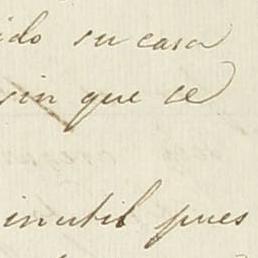 ido su casa
sin que se
inutil pues